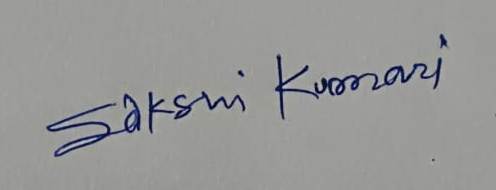 Sakshi Kumari